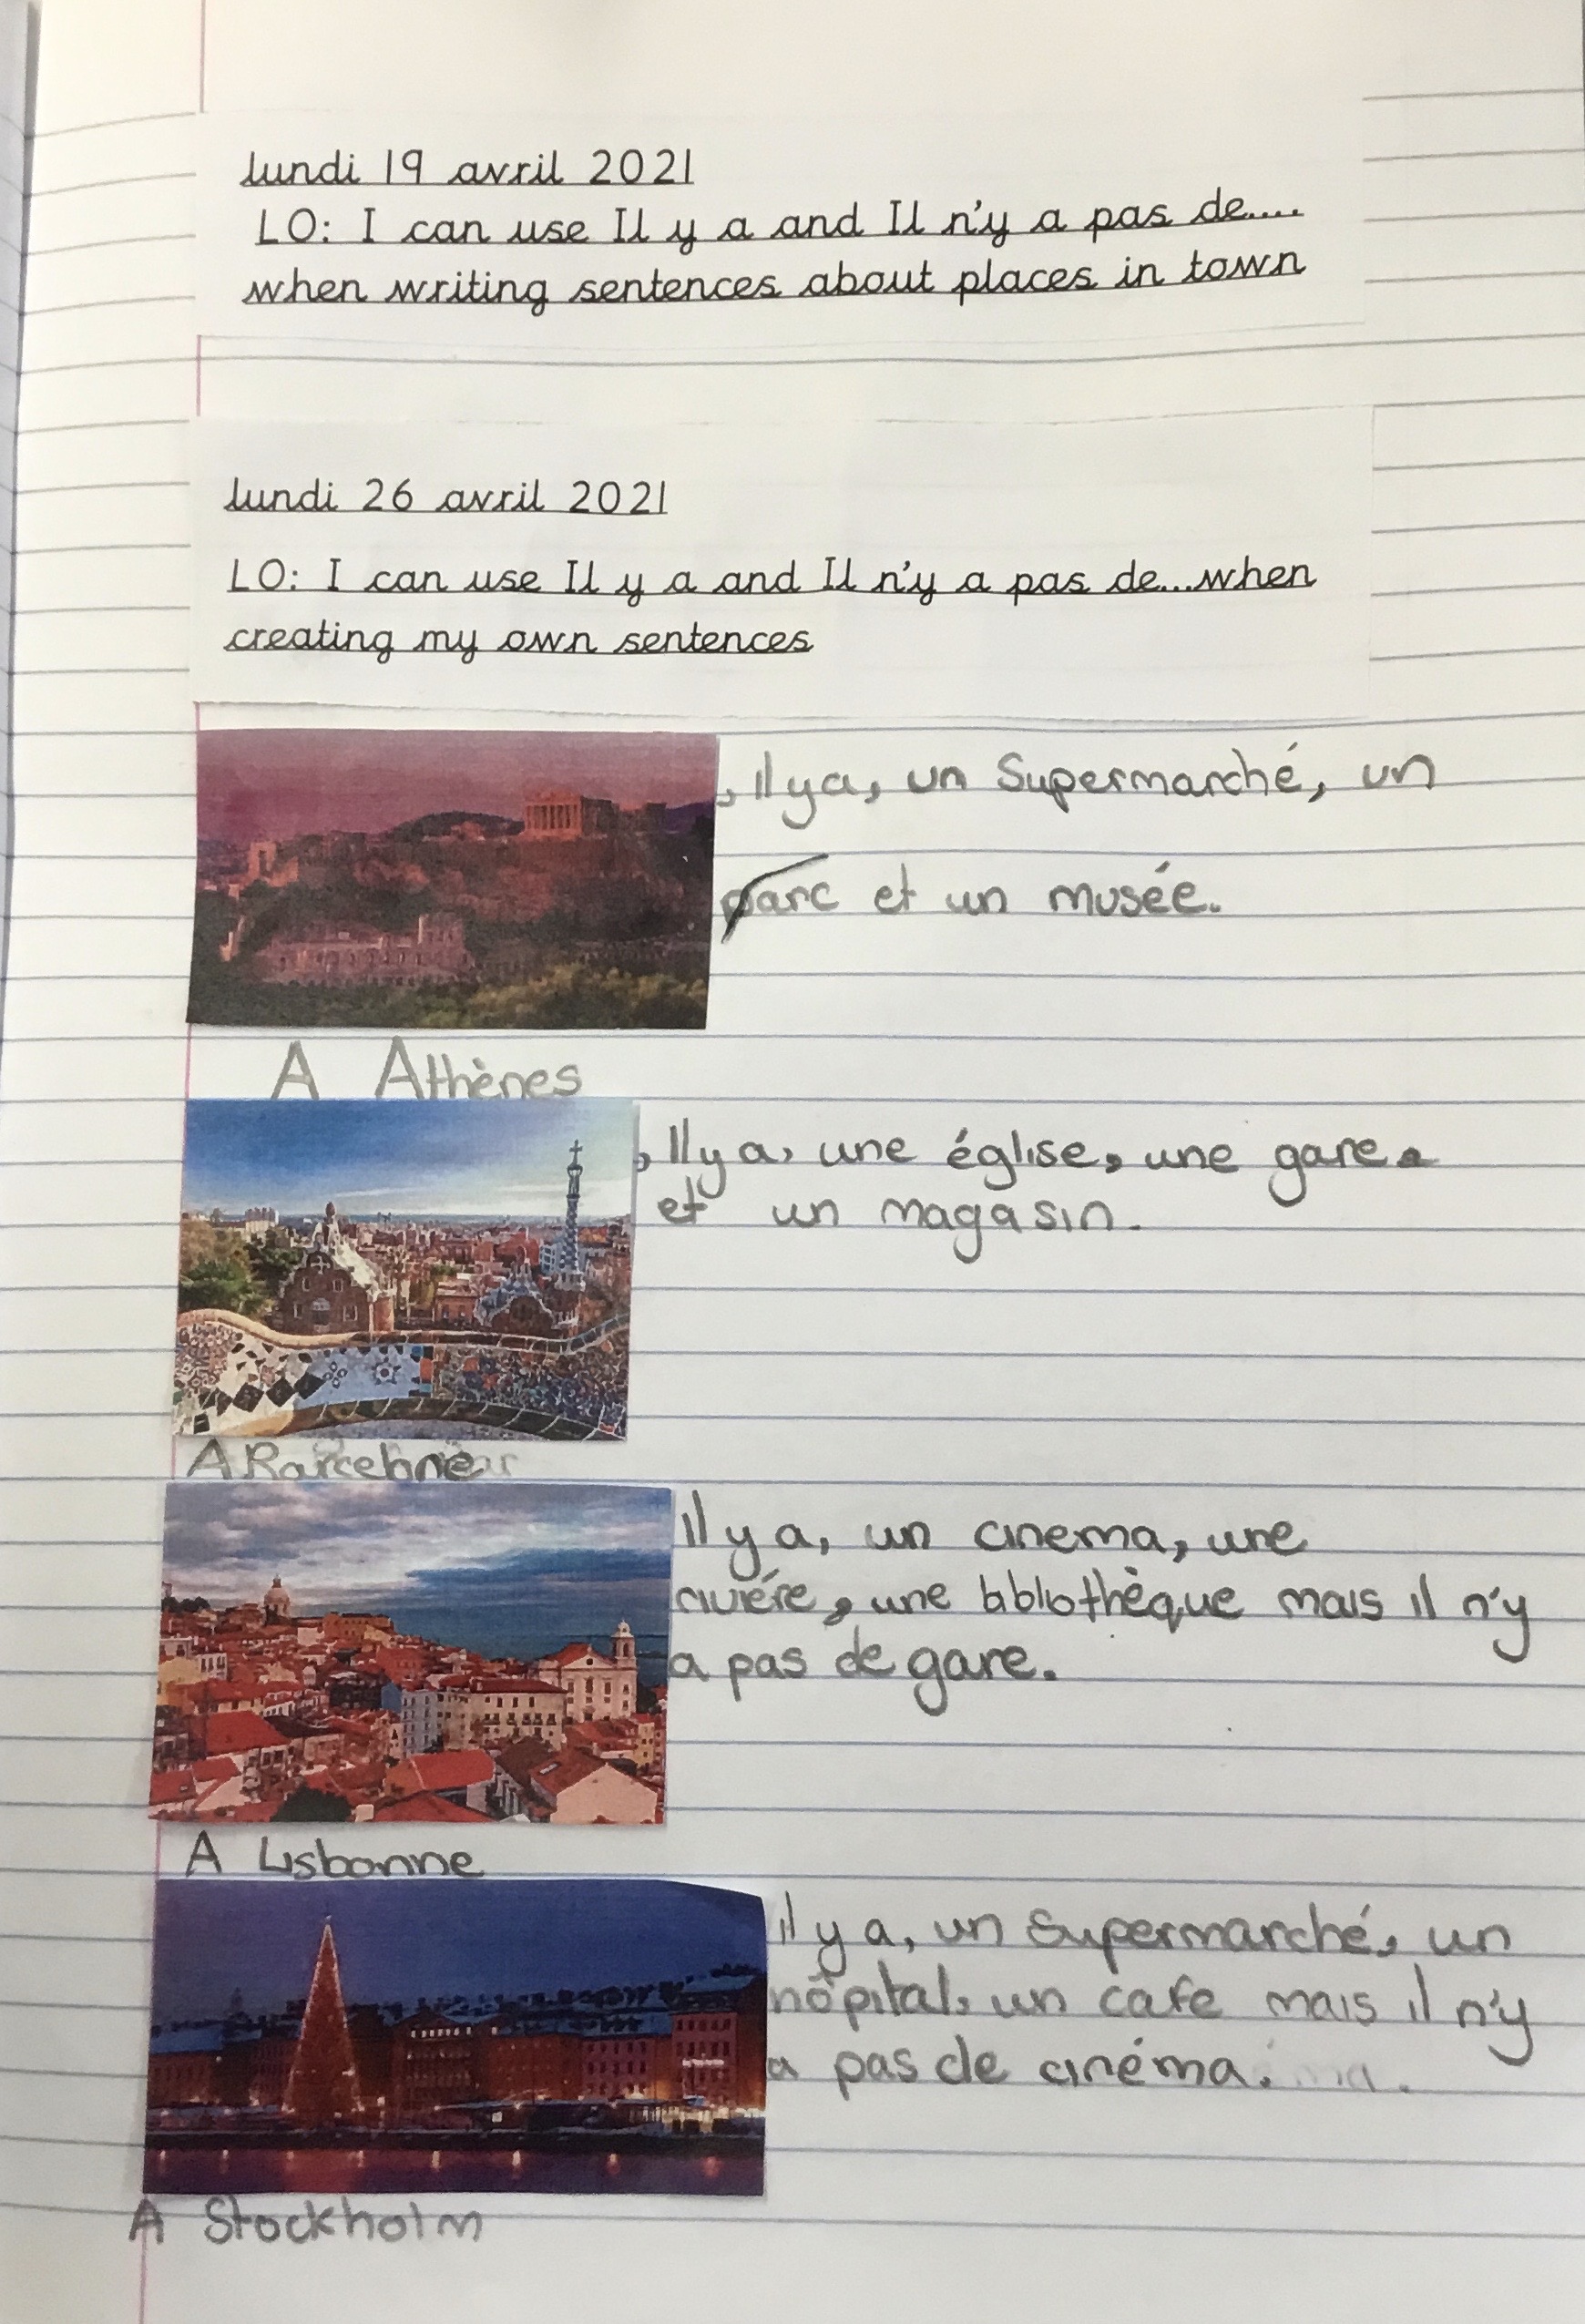 lundi 19 avril 2021
LO: I can use Il y a and Il n'y a pas de....
when writing sentences about places in town
lundi 26 avril 2021
LO: I can use Il y a and Il n'y a pas de...when
creating my own sentences
, Il y a, un Supermarché, un
parc et un musée.
A Athènes
, Il y a, une église, une gare
et un magasin.
A
Il y a, un cinema, une
riviére, une bibliothèque mais il n'y
a pas de gare.
A Lisbonne
il y a, un Supermarché, un
hôpital, un cafe mais il n'y
a pas de cinéma.
A Stockholm